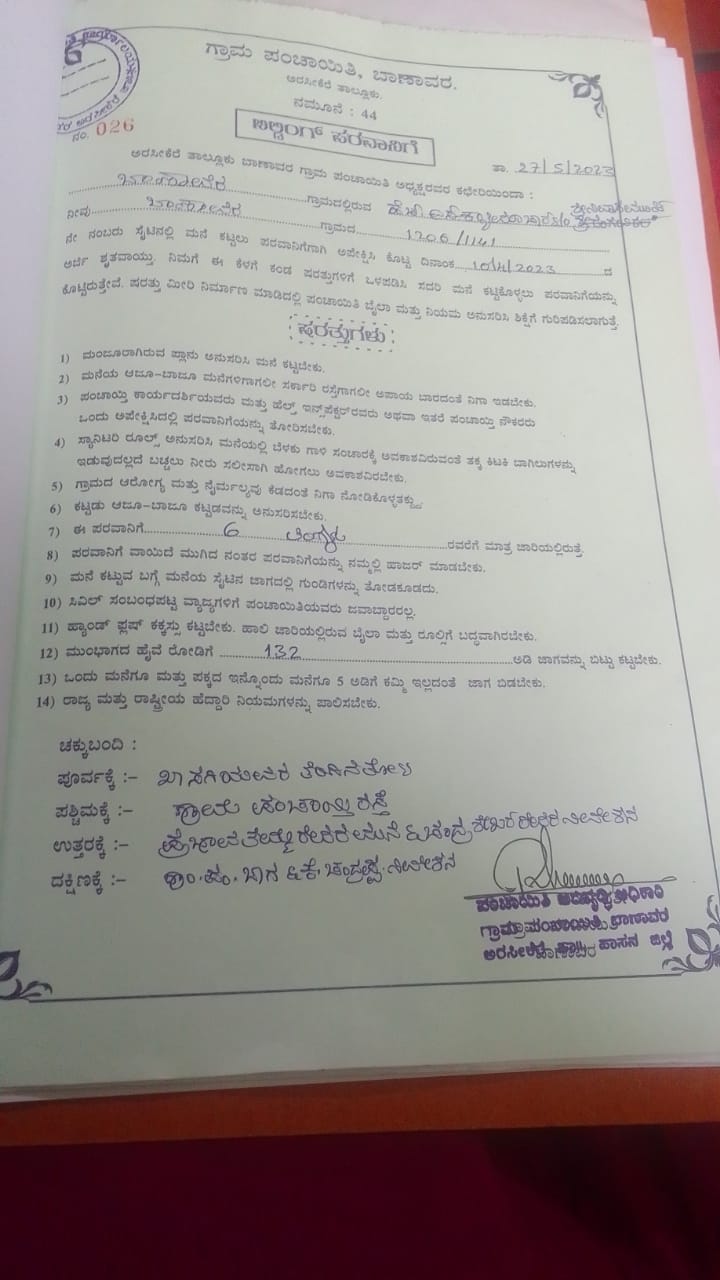 ಗ್ರಾಮ ಪಂಚಾಯಿತಿ, ಬಾಣಾವರ.
ಅರಸೀಕೆರೆ ತಾಲ್ಲೂಕು.
ನಮೂನೆ : 44
ನಂ. 026
ಬಿಲ್ಡಿಂಗ್ ಪರವಾನಿಗೆ
ತಾ. 27/5/2023
ಅರಸೀಕೆರೆ ತಾಲ್ಲೂಕು ಬಾಣಾವರ ಗ್ರಾಮ ಪಂಚಾಯಿತಿ ಅಧ್ಯಕ್ಷರವರ ಕಛೇರಿಯಿಂದಾ :
ಬಾಣಾವರ ಗ್ರಾಮದಲ್ಲಿರುವ
ನೀವು ಬಾಣಾವರ ಗ್ರಾಮದ 1206/1141
ನೇ ನಂಬರು ಸೈಟಿನಲ್ಲಿ ಮನೆ ಕಟ್ಟಲು ಪರವಾನಿಗೆಗಾಗಿ ಅಪೇಕ್ಷಿಸಿ ಕೊಟ್ಟ ದಿನಾಂಕ 10/4/2023 ದ
ಅರ್ಜಿ ಶೃತವಾಯ್ತು. ನಿಮಗೆ ಈ ಕೆಳಗೆ ಕಂಡ ಷರತ್ತುಗಳಿಗೆ ಒಳಪಡಿಸಿ ಸದರಿ ಮನೆ ಕಟ್ಟಿಕೊಳ್ಳಲು ಪರವಾನಿಗೆಯನ್ನು
ಕೊಟ್ಟಿರುತ್ತೇವೆ. ಷರತ್ತು ಮೀರಿ ನಿರ್ಮಾಣ ಮಾಡಿದಲ್ಲಿ ಪಂಚಾಯಿತಿ ಬೈಲಾ ಮತ್ತು ನಿಯಮ ಅನುಸರಿಸಿ ಶಿಕ್ಷೆಗೆ ಗುರಿಪಡಿಸಲಾಗುತ್ತೆ.
ಷರತ್ತುಗಳು
1) ಮಂಜೂರಾಗಿರುವ ಪ್ಲಾನು ಅನುಸರಿಸಿ ಮನೆ ಕಟ್ಟಬೇಕು.
2) ಮನೆಯ ಆಜೂ-ಬಾಜೂ ಮನೆಗಳಿಗಾಗಲೀ ಸರ್ಕಾರಿ ರಸ್ತೆಗಾಗಲೀ ಅಪಾಯ ಬಾರದಂತೆ ನಿಗಾ ಇಡಬೇಕು.
3) ಪಂಚಾಯ್ತಿ ಕಾರ್ಯದರ್ಶಿಯವರು ಮತ್ತು ಹೆಲ್ತ್ ಇನ್ಸ್‌ಪೆಕ್ಟರ್‌ರವರು ಅಥವಾ ಇತರೆ ಪಂಚಾಯ್ತಿ ನೌಕರರು
ಒಂದು ಅಪೇಕ್ಷಿಸಿದಲ್ಲಿ ಪರವಾನಿಗೆಯನ್ನು ತೋರಿಸಬೇಕು.
4) ಸ್ಯಾನಿಟರಿ ರೂಲ್ಸ್ ಅನುಸರಿಸಿ ಮನೆಯಲ್ಲಿ ಬೆಳಕು ಗಾಳಿ ಸಂಚಾರಕ್ಕೆ ಅವಕಾಶವಿರುವಂತೆ ತಕ್ಕ ಕಿಟಕಿ ಬಾಗಿಲುಗಳನ್ನು
ಇಡುವುದಲ್ಲದೆ ಬಚ್ಚಲು ನೀರು ಸಲೀಸಾಗಿ ಹೋಗಲು ಅವಕಾಶವಿರಬೇಕು.
5) ಗ್ರಾಮದ ಆರೋಗ್ಯ ಮತ್ತು ನೈರ್ಮಲ್ಯವು ಕೆಡದಂತೆ ನಿಗಾ ನೋಡಿಕೊಳ್ಳತಕ್ಕದ್ದು
6) ಕಟ್ಟಡು ಆಜೂ-ಬಾಜೂ ಕಟ್ಟಡವನ್ನು ಅನುಸರಿಸಬೇಕು.
7) ಈ ಪರವಾನಿಗೆ 6 ತಿಂಗಳ ರವರೆಗೆ ಮಾತ್ರ ಜಾರಿಯಲ್ಲಿರುತ್ತೆ.
8) ಪರವಾನಿಗೆ ವಾಯಿದೆ ಮುಗಿದ ನಂತರ ಪರವಾನಿಗೆಯನ್ನು ನಮ್ಮಲ್ಲಿ ಹಾಜರ್ ಮಾಡಬೇಕು.
9) ಮನೆ ಕಟ್ಟುವ ಬಗ್ಗೆ ಮನೆಯ ಸೈಟಿನ ಜಾಗದಲ್ಲಿ ಗುಂಡಿಗಳನ್ನು ತೋಡಕೂಡದು.
10) ಸಿವಿಲ್ ಸಂಬಂಧಪಟ್ಟ ವ್ಯಾಜ್ಯಗಳಿಗೆ ಪಂಚಾಯಿತಿಯವರು ಜವಾಬ್ದಾರರಲ್ಲ.
11) ಹ್ಯಾಂಡ್ ಫ್ಲಷ್ ಕಕ್ಕಸ್ಸು ಕಟ್ಟಬೇಕು. ಹಾಲಿ ಜಾರಿಯಲ್ಲಿರುವ ಬೈಲಾ ಮತ್ತು ರೂಲ್ಸಿಗೆ ಬದ್ಧವಾಗಿರಬೇಕು.
12) ಮುಂಭಾಗದ ಹೈವೆ ರೋಡಿಗೆ 132 ಅಡಿ ಜಾಗವನ್ನು ಬಿಟ್ಟು ಕಟ್ಟಬೇಕು.
13) ಒಂದು ಮನೆಗೂ ಮತ್ತು ಪಕ್ಕದ ಇನ್ನೊಂದು ಮನೆಗೂ 5 ಅಡಿಗೆ ಕಮ್ಮಿ ಇಲ್ಲದಂತೆ ಜಾಗ ಬಿಡಬೇಕು.
14) ರಾಜ್ಯ ಮತ್ತು ರಾಷ್ಟ್ರೀಯ ಹೆದ್ದಾರಿ ನಿಯಮಗಳನ್ನು ಪಾಲಿಸಬೇಕು.
ಚಕ್ಕುಬಂದಿ :
ಪೂರ್ವಕ್ಕೆ :- ಖಾಸಗಿಯವರ ತೆಂಗಿನತೋಟ
ಪಶ್ಚಿಮಕ್ಕೆ :- ಗ್ರಾಮ ಪಂಚಾಯ್ತಿ ರಸ್ತೆ
ಉತ್ತರಕ್ಕೆ :-
ದಕ್ಷಿಣಕ್ಕೆ :- ಗ್ರಾಂ.ಪಂ. ಬಾಗ ಚಂದ್ರಪ್ಪ ನಿವೇಶನ
ಪಂಚಾಯಿತಿ ಅಭಿವೃದ್ಧಿ ಅಧಿಕಾರಿ
ಗ್ರಾಮ ಪಂಚಾಯಿತಿ ಬಾಣಾವರ
ಅರಸೀಕೆರೆ ತಾ|| ಹಾಸನ ಜಿಲ್ಲೆ